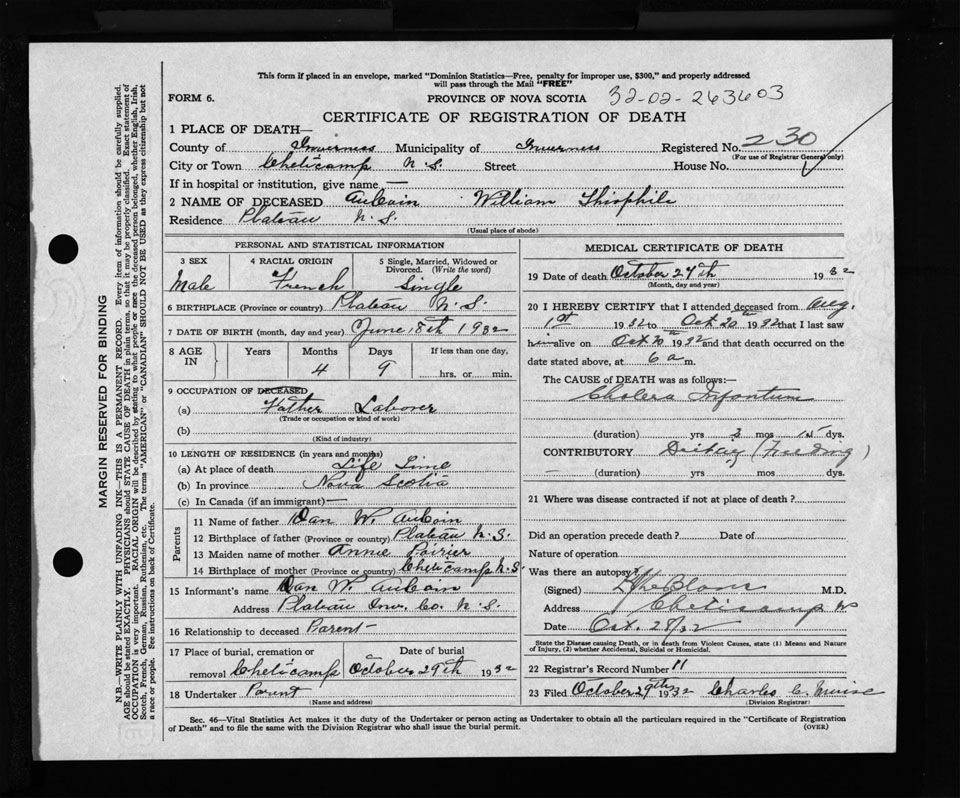 This form if placed in an envelope, marked "Dominion Statistics—Free, penalty for improper use, $300," and properly addressed
will pass through the Mail "FREE"
FORM 6. PROVINCE OF NOVA SCOTIA 32-02-263603
CERTIFICATE OF REGISTRATION OF DEATH
1 PLACE OF DEATH—
County of Inverness Municipality of Inverness Registered No. 230
(For use of Registrar General only)
City or Town Cheticamp N.S. Street House No.
If in hospital or institution, give name —
2 NAME OF DECEASED AuCoin William Thiophile
Residence Plateau N.S.
(Usual place of abode)
PERSONAL AND STATISTICAL INFORMATION
3 SEX 4 RACIAL ORIGIN 5 Single, Married, Widowed or
Divorced. (Write the word)
Male French Single
6 BIRTHPLACE (Province or country) Plateau N.S.
7 DATE OF BIRTH (month, day and year) June 18th 1932
8 AGE IN Years Months Days If less than one day,
4 9 hrs. or min.
9 OCCUPATION OF DECEASED
(a) Father Laborer
(Trade or occupation or kind of work)
(b)
(Kind of industry)
10 LENGTH OF RESIDENCE (in years and months)
(a) At place of death Life Time
(b) In province Nova Scotia
(c) In Canada (if an immigrant) —
Parents
11 Name of father Dan W. AuCoin
12 Birthplace of father (Province or country) Plateau N.S.
13 Maiden name of mother Annie Poirier
14 Birthplace of mother (Province or country) Cheticamp N.S.
15 Informant's name Dan W. AuCoin
Address Plateau Inv. Co. N.S.
16 Relationship to deceased Parent
17 Place of burial, cremation or Date of burial
removal Cheticamp October 29th 1932
18 Undertaker Parent
(Name and address)
MEDICAL CERTIFICATE OF DEATH
19 Date of death October 27th 1932
(Month, day and year)
20 I HEREBY CERTIFY that I attended deceased from Aug.
1st 1932 to Oct 20th 1932 that I last saw
him alive on Oct 20th 1932 and that death occurred on the
date stated above, at 6 a m.
The CAUSE of DEATH was as follows:—
Cholera Infantum
(duration) yrs 3 mos 1st dys.
CONTRIBUTORY (Feeding)
— (duration) yrs mos dys.
21 Where was disease contracted if not at place of death?
Did an operation precede death? Date of
Nature of operation
Was there an autopsy?
(Signed) M.D.
Address Cheticamp NS
Date Oct. 28/32
State the Disease causing Death, or in death from Violent Causes, state (1) Means and Nature
of Injury, (2) whether Accidental, Suicidal or Homicidal.
22 Registrar's Record Number 11
23 Filed October 29th 1932 Charles C. Muise
(Division Registrar)
Sec. 46—Vital Statistics Act makes it the duty of the Undertaker or person acting as Undertaker to obtain all the particulars required in the "Certificate of Registration
of Death" and to file the same with the Division Registrar who shall issue the burial permit. (OVER)
MARGIN RESERVED FOR BINDING
N.B.—WRITE PLAINLY WITH UNFADING INK—THIS IS A PERMANENT RECORD. Every item of information should be carefully supplied.
AGE should be stated EXACTLY. PHYSICIANS should STATE CAUSE OF DEATH in plain terms, so that it may be properly classified. Exact statement of
OCCUPATION is very important. RACIAL ORIGIN will be described by stating to what people or race the deceased person belonged, whether English, Irish,
Scotch, French, German, Russian, Ruthenian, etc. The terms "AMERICAN" or "CANADIAN" SHOULD NOT BE USED as they express citizenship but not
a race or people. See instructions on back of Certificate.